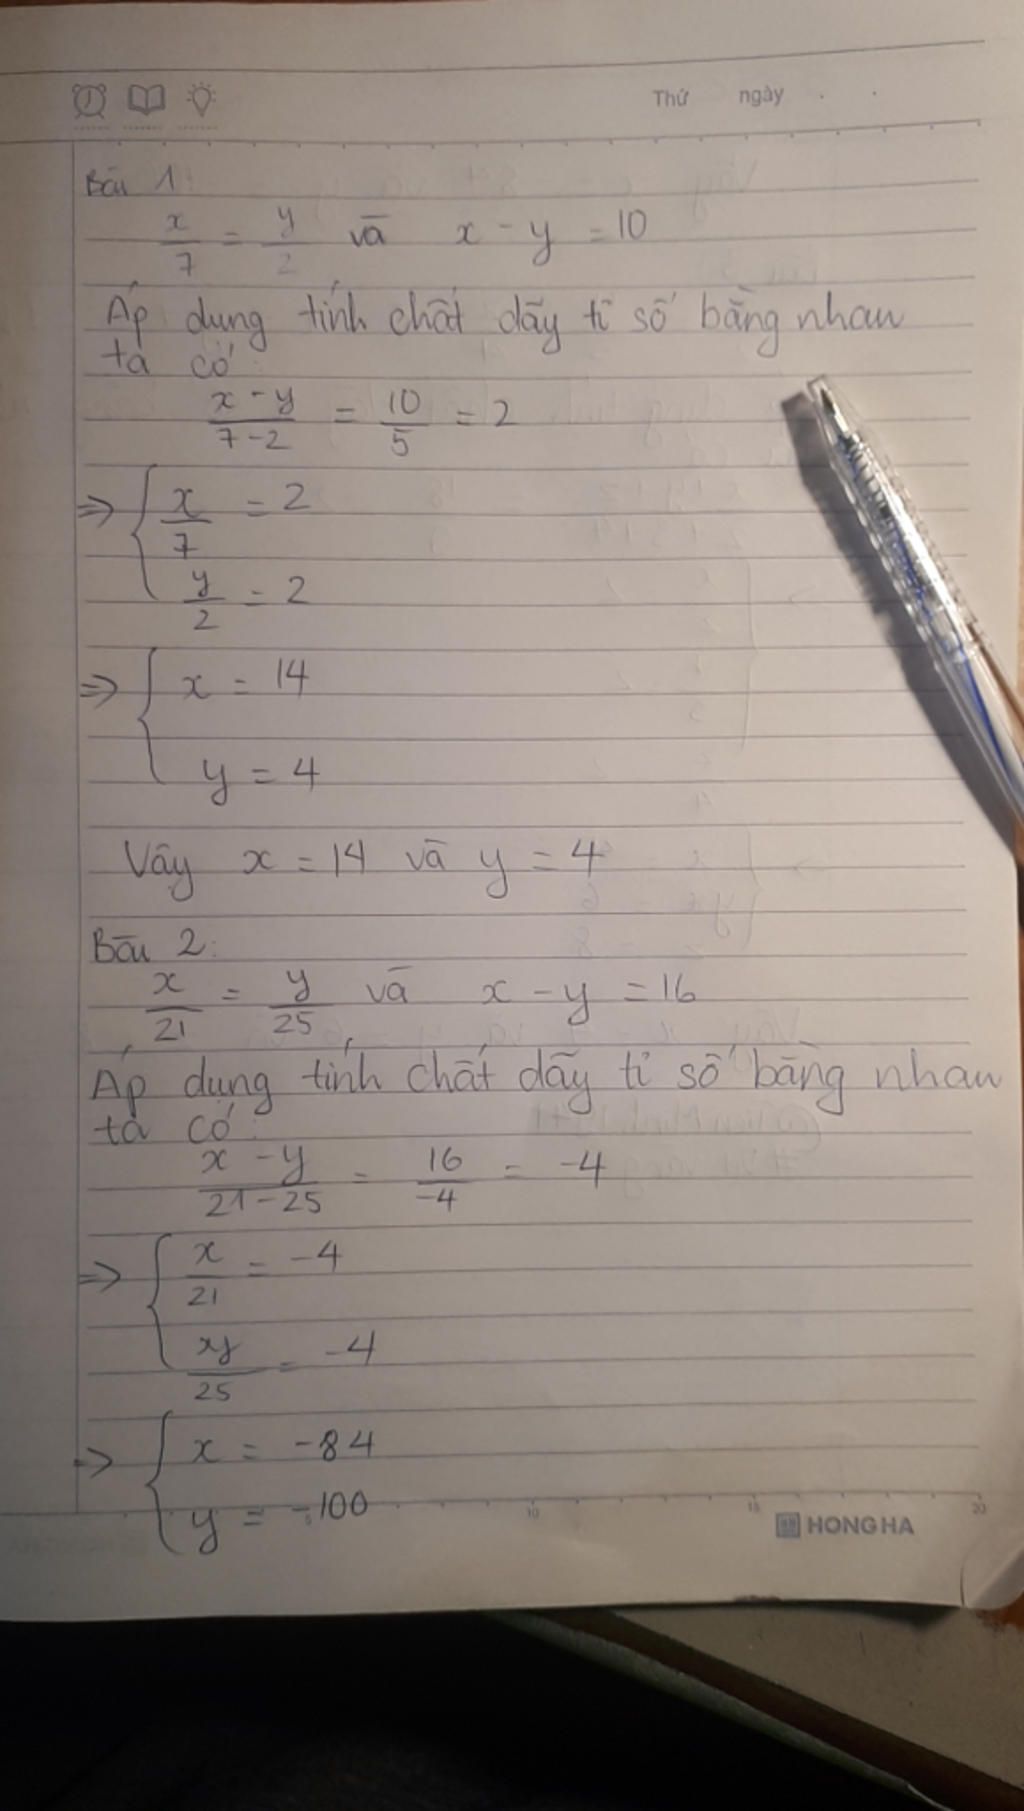 Thứ ngày . .
Bài 1:
x/7 = y/2 và x - y = 10
Áp dụng tính chất dãy tỉ số bằng nhau
ta có:
x - y/7 - 2 = 10/5 = 2
⇒ { x/7 = 2
y/2 = 2
⇒ { x = 14
y = 4
Vậy x = 14 và y = 4
Bài 2:
x/21 = y/25 và x - y = 16
Áp dụng tính chất dãy tỉ số bằng nhau
ta có:
x - y/21 - 25 = 16/-4 = -4
⇒ { x/21 = -4
y/25 = -4
⇒ { x = -84
y = -100
10 15 20
HONG HA